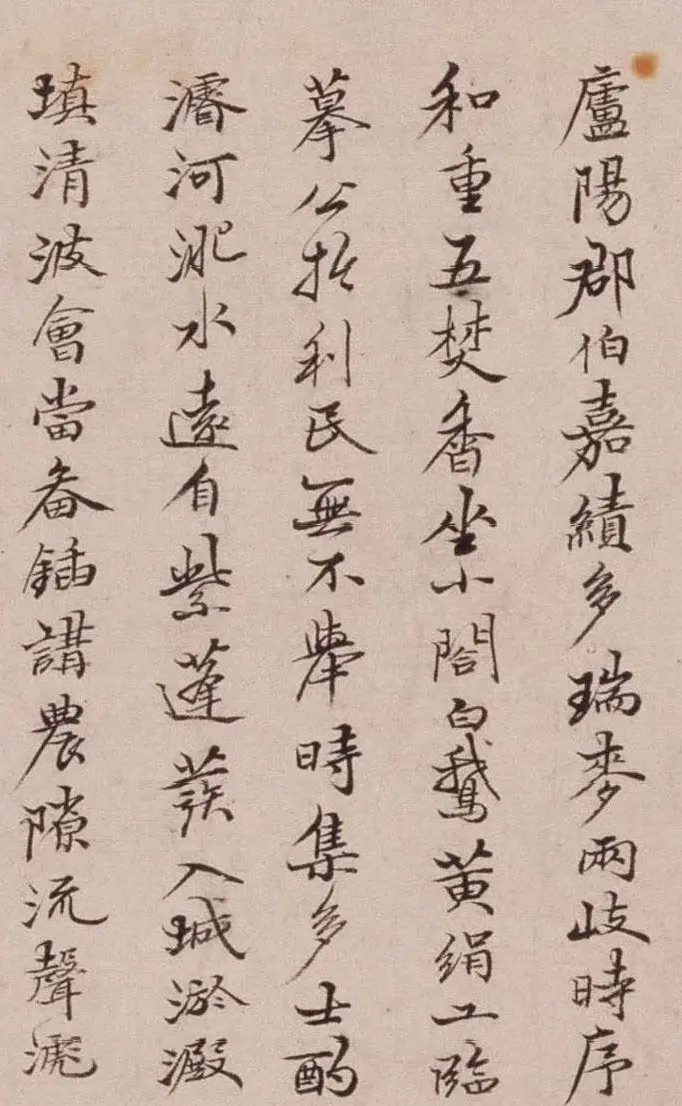 廬陽郡伯嘉績多瑞麥兩岐時序
和重五焚香坐小閣白鵝黃絹工臨
摹公於利民無不舉時集多士酌
濬河淝水遠自紫蓬發入城淤澱
填清波會當畚鍤講農隙流聲滮